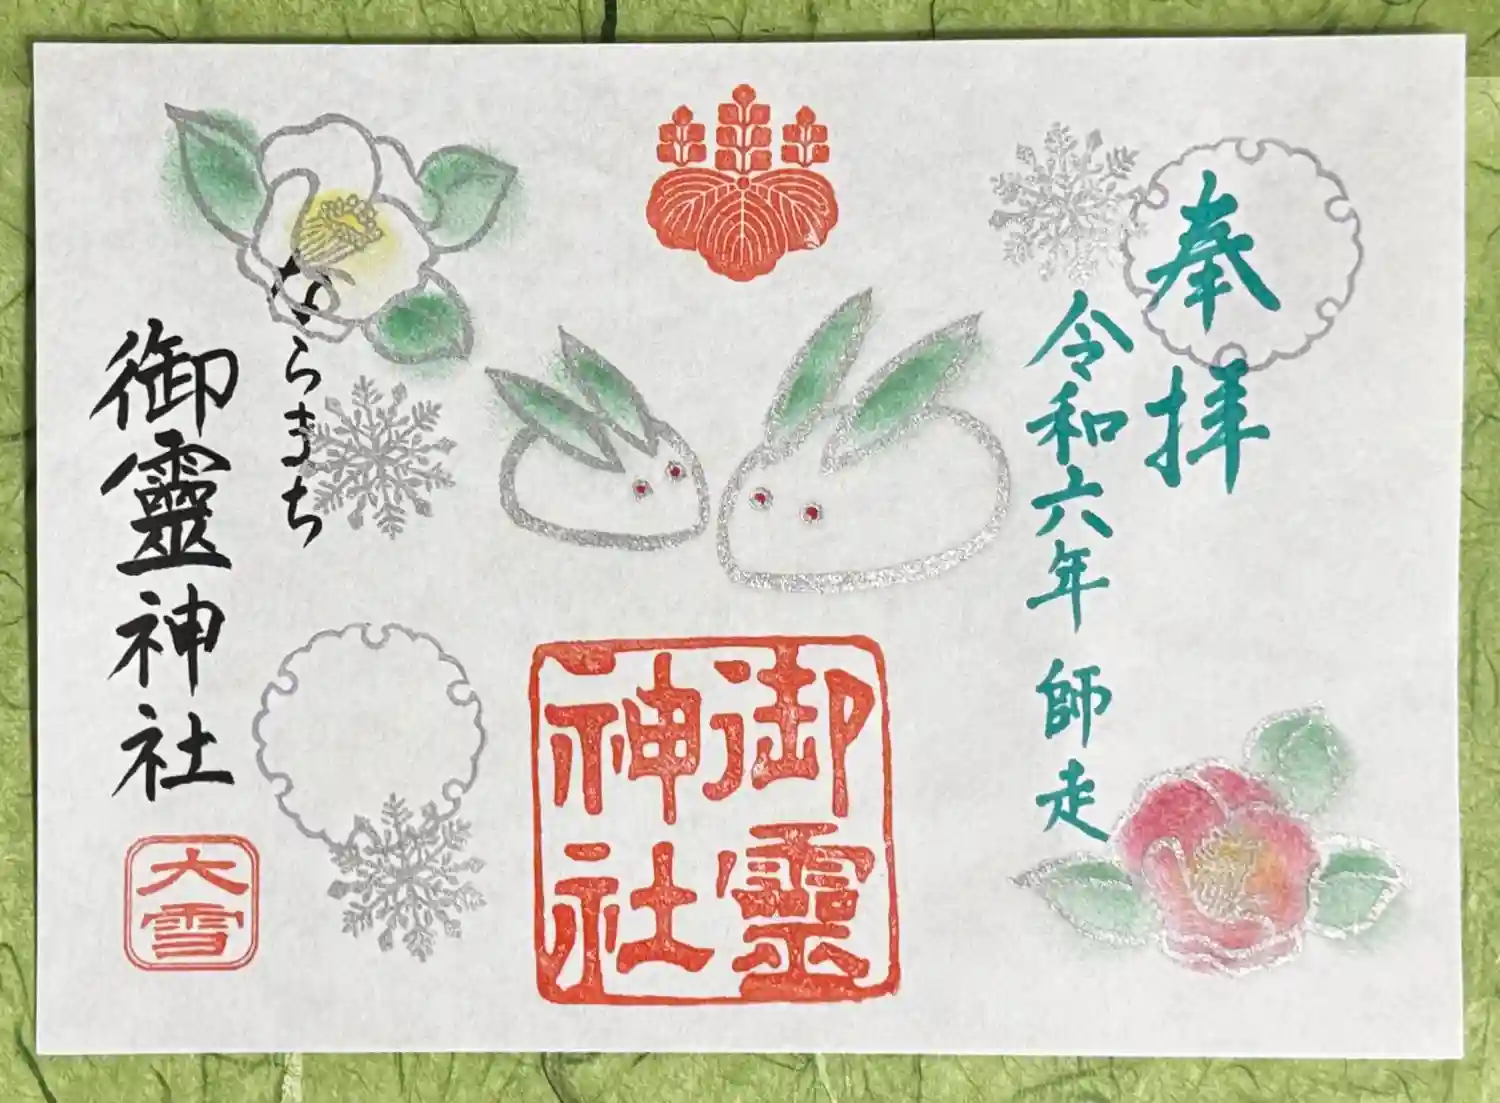 奉拝
令和六年 師走
御靈神社
ならまち
御靈神社
大雪